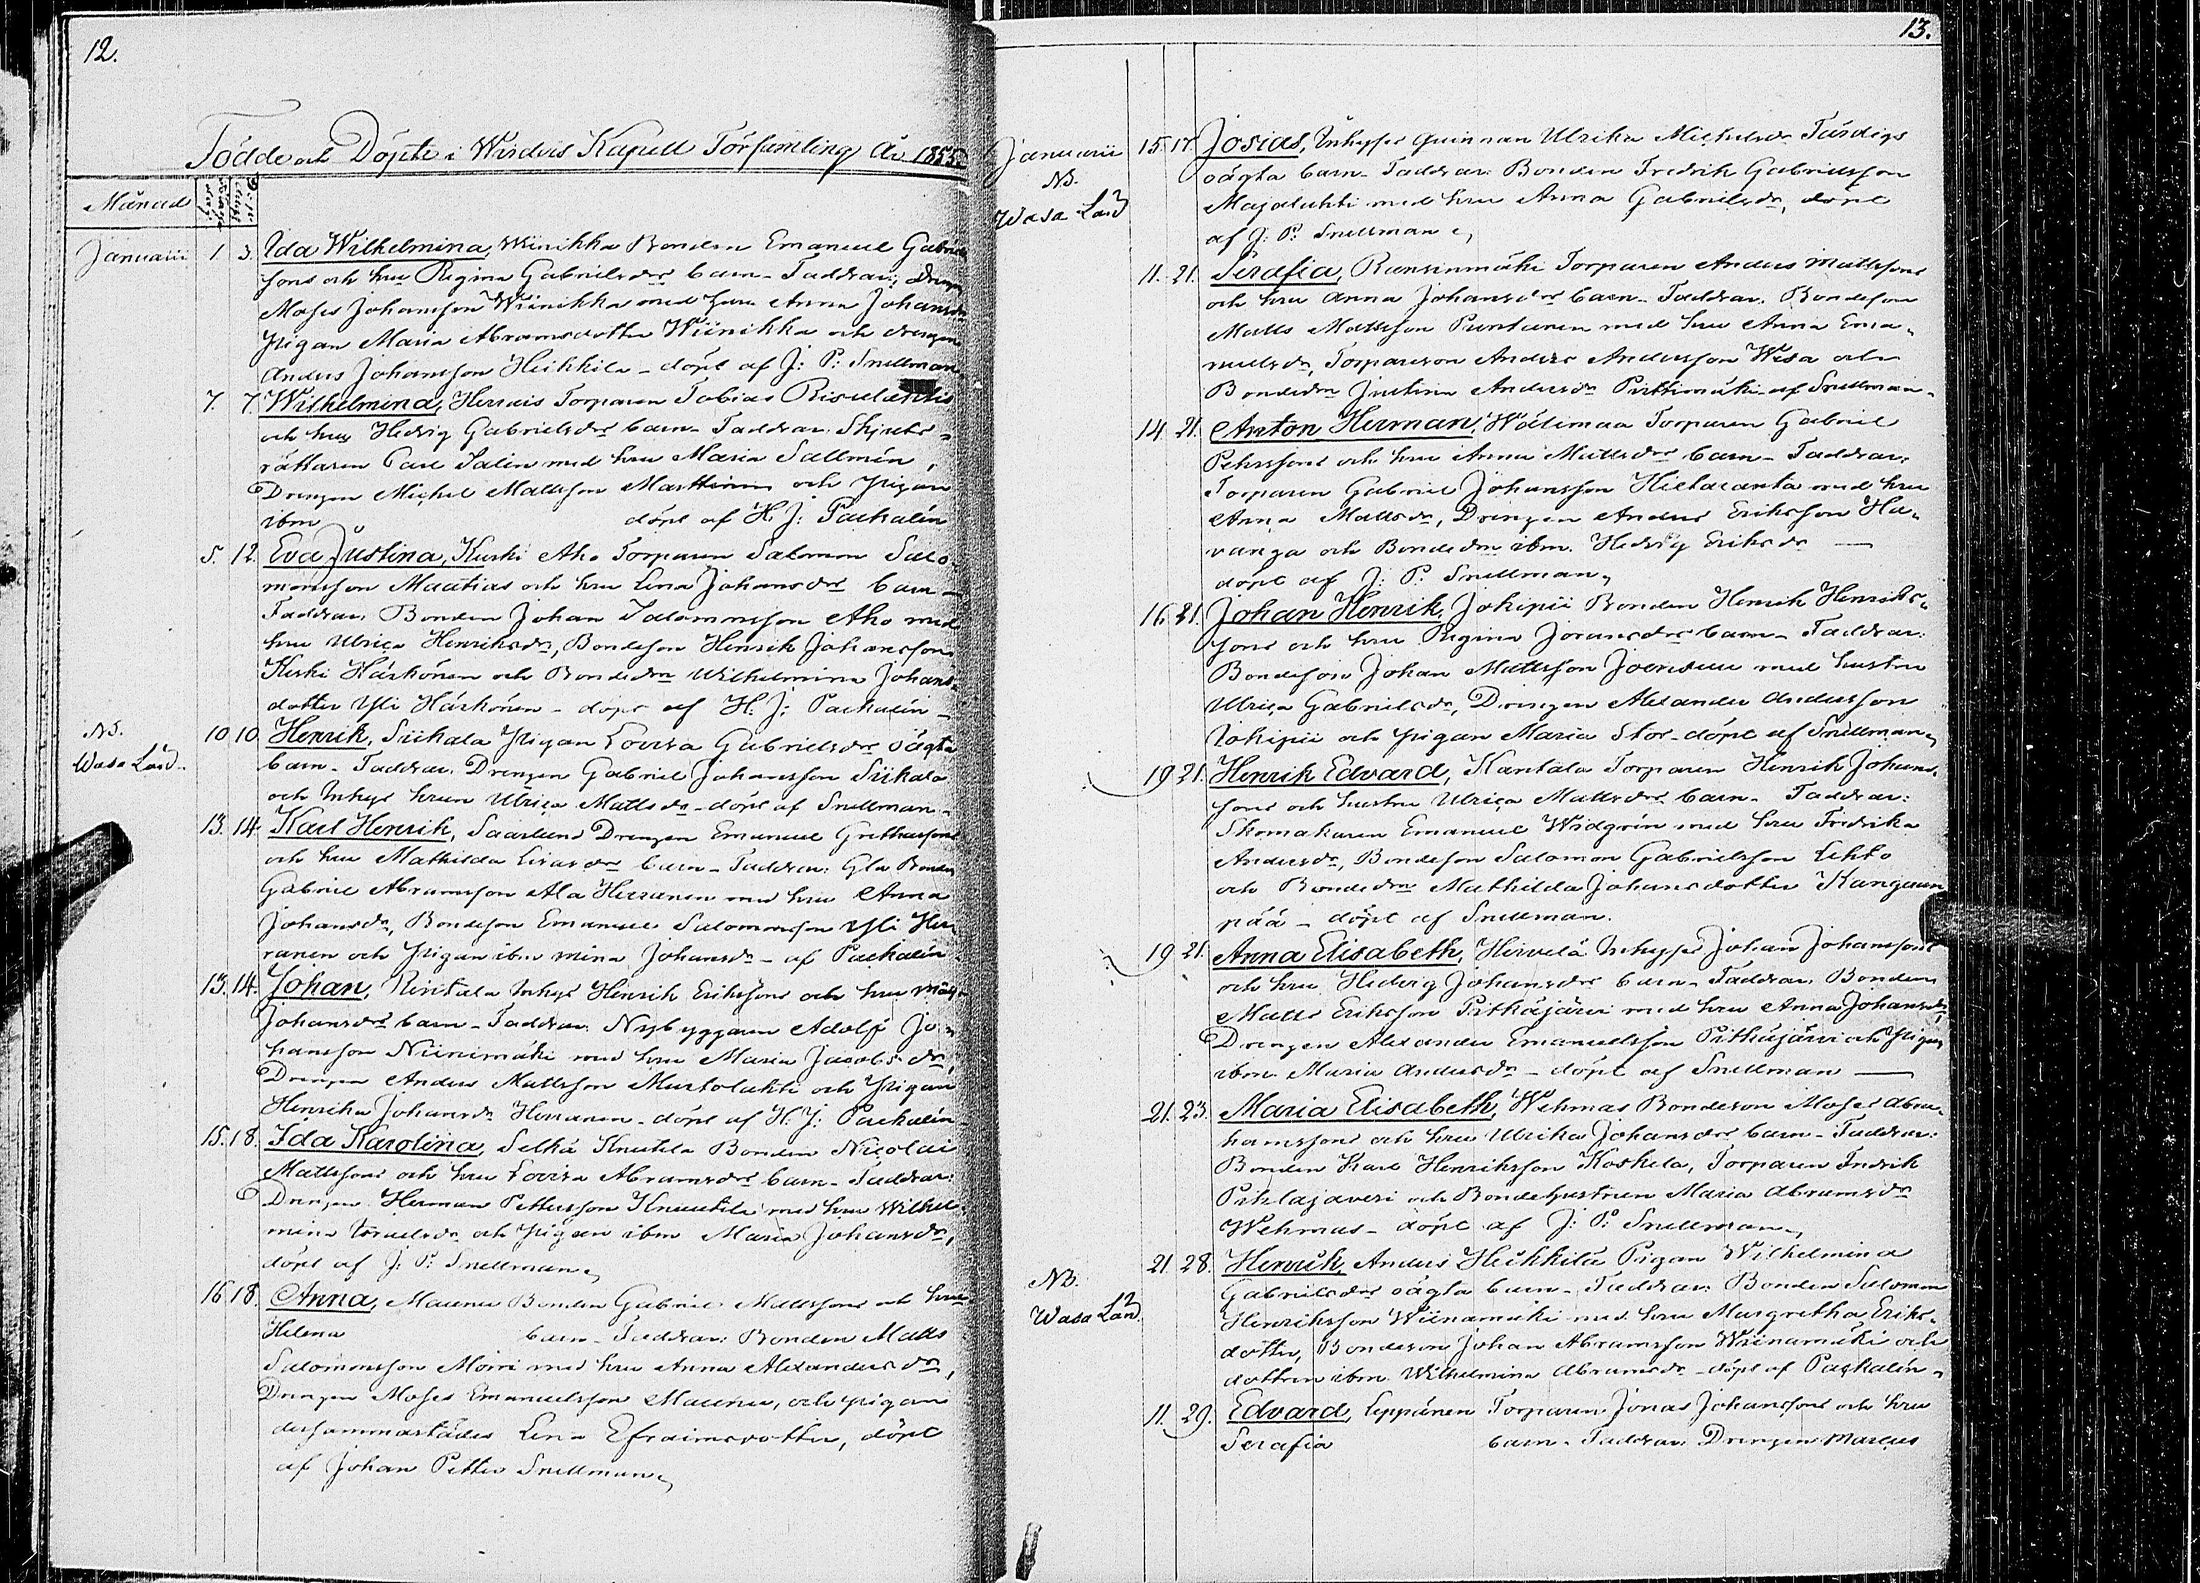 12.
Födde och Döpte i Wirdois Kapell Församling År 1855.
Månad
Januarii 1 3. Ida Wilhelmina, Wiinikka Bonden Emanuel Gabriels
sons och hru Regina Gabrielsdrs barn - Faddrar: Drengen
Moses Johansson Wiinikka med hru Anna Johansdr
Pigan Maria Abramsdotter Wiinikka och drengen
Anders Johansson Heikkila - döpt af J: P: Snellman
7. 7. Wilhelmina, Herrais Torparen Tobias
och hru Hedvig Gabrielsdrs barn - Faddrar: Skjuts-
rättaren Carl Salin med hru Maria Sallmén,
Drengen Michel Mattsson Marttinen och Pigan
ibm döpt af H. J: Packalén
5. 12. Eva Justina, Keski Aho Torparen Salomon Salo
monsson Maatias och hru Lena Johansdrs barn -
Faddrar: Bonden Johan Salomonsson Aho med
hru Ulrica Henriksdr, Bondeson Henrik Johansson
Keski Härkönen och Bondedrn Wilhelmina Johans-
dotter Yli Härkönen - döpt af H. J: Packalén -
NB.
Wasa Län 10 10. Henrik, Siikala Pigan Lovisa Gabrielsdrs oägta
barn - Faddrar: Drengen Gabriel Johansson Siikala
och Inhys hrun Ulrica Mattsdr - döpt af Snellman -
13. 14. Karl Henrik, Drengen Emanuel
och hru Mathilda barn - Faddrar: Gla Bonden
Gabriel Abramsson Ala Herranen med hru Anna
Johansdr, Bondeson Emanuel Salomonsson Yli Her
ranen och Pigan ibm Mina Johansdr - af Packalén
13. 14. Johan, Rintala Inhys Henrik Erikssons och hru
Johansdrs barn - Faddrar: Nybyggaren Adolf Jo-
hansson Niinimäki med hru Maria Jacobsdr,
Drengen Anders Mattsson Mustolahti och Pigan
Henrika Johansdr Herranen - döpt af H. J: Packalén
15. 18. Ida Karolina, Selkä Knuutila Bonden Nicolai
Mattssons och hru Lovisa Abramsdrs barn - Faddrar:
Drengen Herman Pettersson Knuutila med hru Wilhel
mina och Pigan ibm Maria Johansdr,
döpt af J: P: Snellman
16 18. Anna, Maunu Bonden Gabriel Mattssons och hru
Helena barn - Faddrar: Bonden Matts
Salomonsson Mörri med hru Anna Alexandersdr,
Drengen Moses Emanuelsson Maunu, och pigan
dersammastädes Lena Efraimsdotter, döpt
af Johan Petter Snellman
13.
Januarii 15 17. Josias, Inhyses Quinnan Ulrika Michelsdr Färdigs
NB. oägta barn - Faddrar: Bonden Fredrik Gabrielsson
Wasa Län Majalahti med hru Anna Gabrielsdr, döpt
af J: P: Snellman
11. 21. Serafia, Ransinmäki Torparen Anders Mattssons
och hru Anna Johansdrs barn - Faddrar: Bondeson
Matts Mattsson Puntanen med hru Anna Ema-
nuelsdr, Torpareson Anders Andersson Wesa och
Bondedrn Justina Andersdr Pirttimäki - af Snellman -
14. 21. Anton Herman, Wälimaa Torparen Gabriel
Pehrssons och hru Anna Mattsdrs barn - Faddrar:
Torparen Gabriel Johansson Hietaranta med hru
Anna Mattsdr, Drengen Anders Eriksson Ha-
vanga och Bondedrn ibm. Hedvig Eriksdr -
döpt af J: P: Snellman
16. 21. Johan Henrik, Jokipii Bonden Henrik Henriks-
sons och hru Regina Joransdrs barn - Faddrar:
Bondeson Johan Mattsson Joensuu med hustru
Ulrica Gabrielsdr, Drengen Alexander Andersson
Jokipii och pigan Maria Stor - döpt af Snellman
19 21. Henrik Edvard, Kantala Torparen Henrik Johans-
sons och hustru Ulrica Mattsdrs barn - Faddrar:
Skomakaren Emanuel Widgrén med hru Fredrika
Andersdr, Bondeson Salomon Gabrielsson Lehto
och Bondedrn Mathilda Johansdotter Kangasen
pää - döpt af Snellman.
19 21. Anna Elisabeth, Hirvelä Inhyses Johan Johanssons
och hru Hedvig Johansdrs barn - Faddrar: Bonden
Matts Eriksson Pitkäjärvi med hru Anna Johansdr,
Drengen Alexander Emanuelsson Pitkäjärvi och Pigan
ibm Maria Andersdr - döpt af Snellman -
21. 23. Maria Elisabeth, Wehmas Bondeson Moses Abra-
hamssons och hru Ulrika Johansdrs barn - Faddrar:
Bonden Karl Henriksson Koskela, Torparen Fredrik
Pihlajavesi och Bondehustrun Maria Abramsdr
Wehmas - döpt af J: P: Snellman
21 28. Henrik, Anders Heikkilä Pigan Wilhelmina
NB. Gabrielsdrs oägta barn - Faddrar: Bonden Salomon
Wasa Län Henriksson Wiinamäki med hru Margretha Eriks-
dotter, Bondeson Johan Abramsson Wiinamäki och
dottren ibm Wilhelmina Abramsdr - döpt af Packalén -
11. 29. Edvard, Leppänen Torparen Jonas Johanssons och hru
Serafia barn - Faddrar: Drengen Marcus